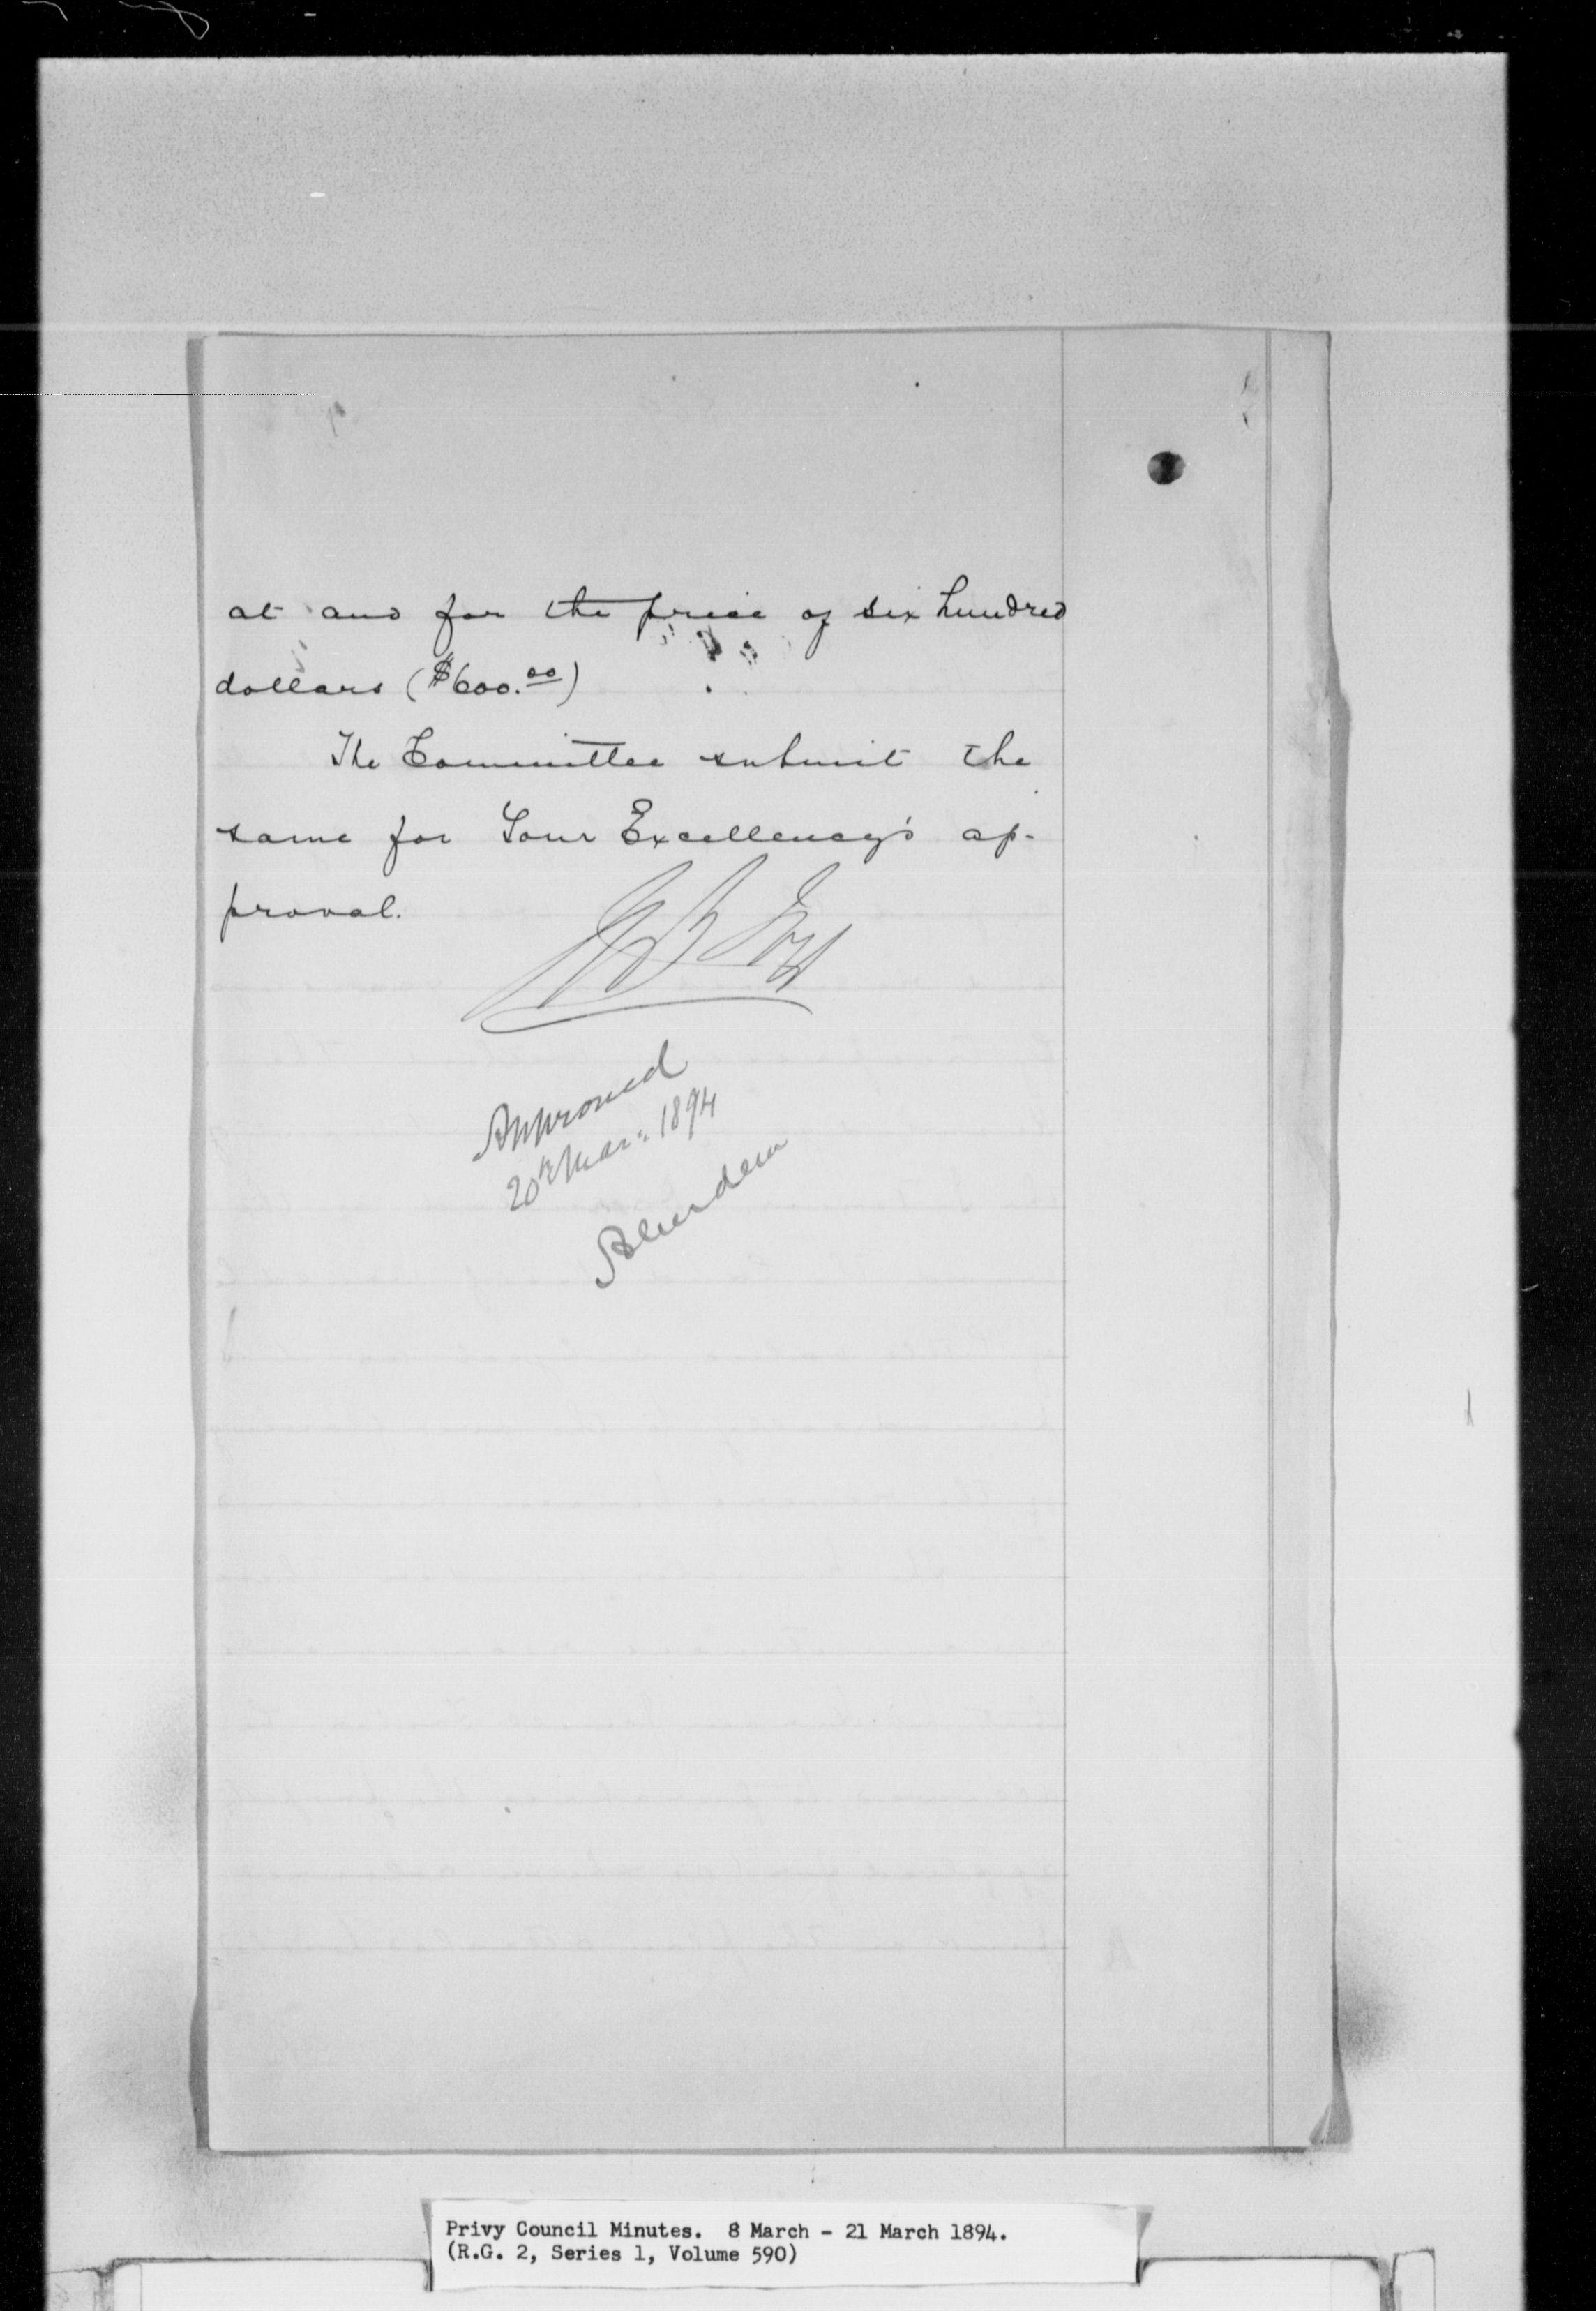 at and for the price of six hundred
dollars ($600.00)
The Committee submit the
same for Your Excellency's ap-
proval.
Approved
20th Mar: 1894
Aberdeen
Privy Council Minutes. 8 March - 21 March 1894.
(R.G. 2, Series 1, Volume 590)